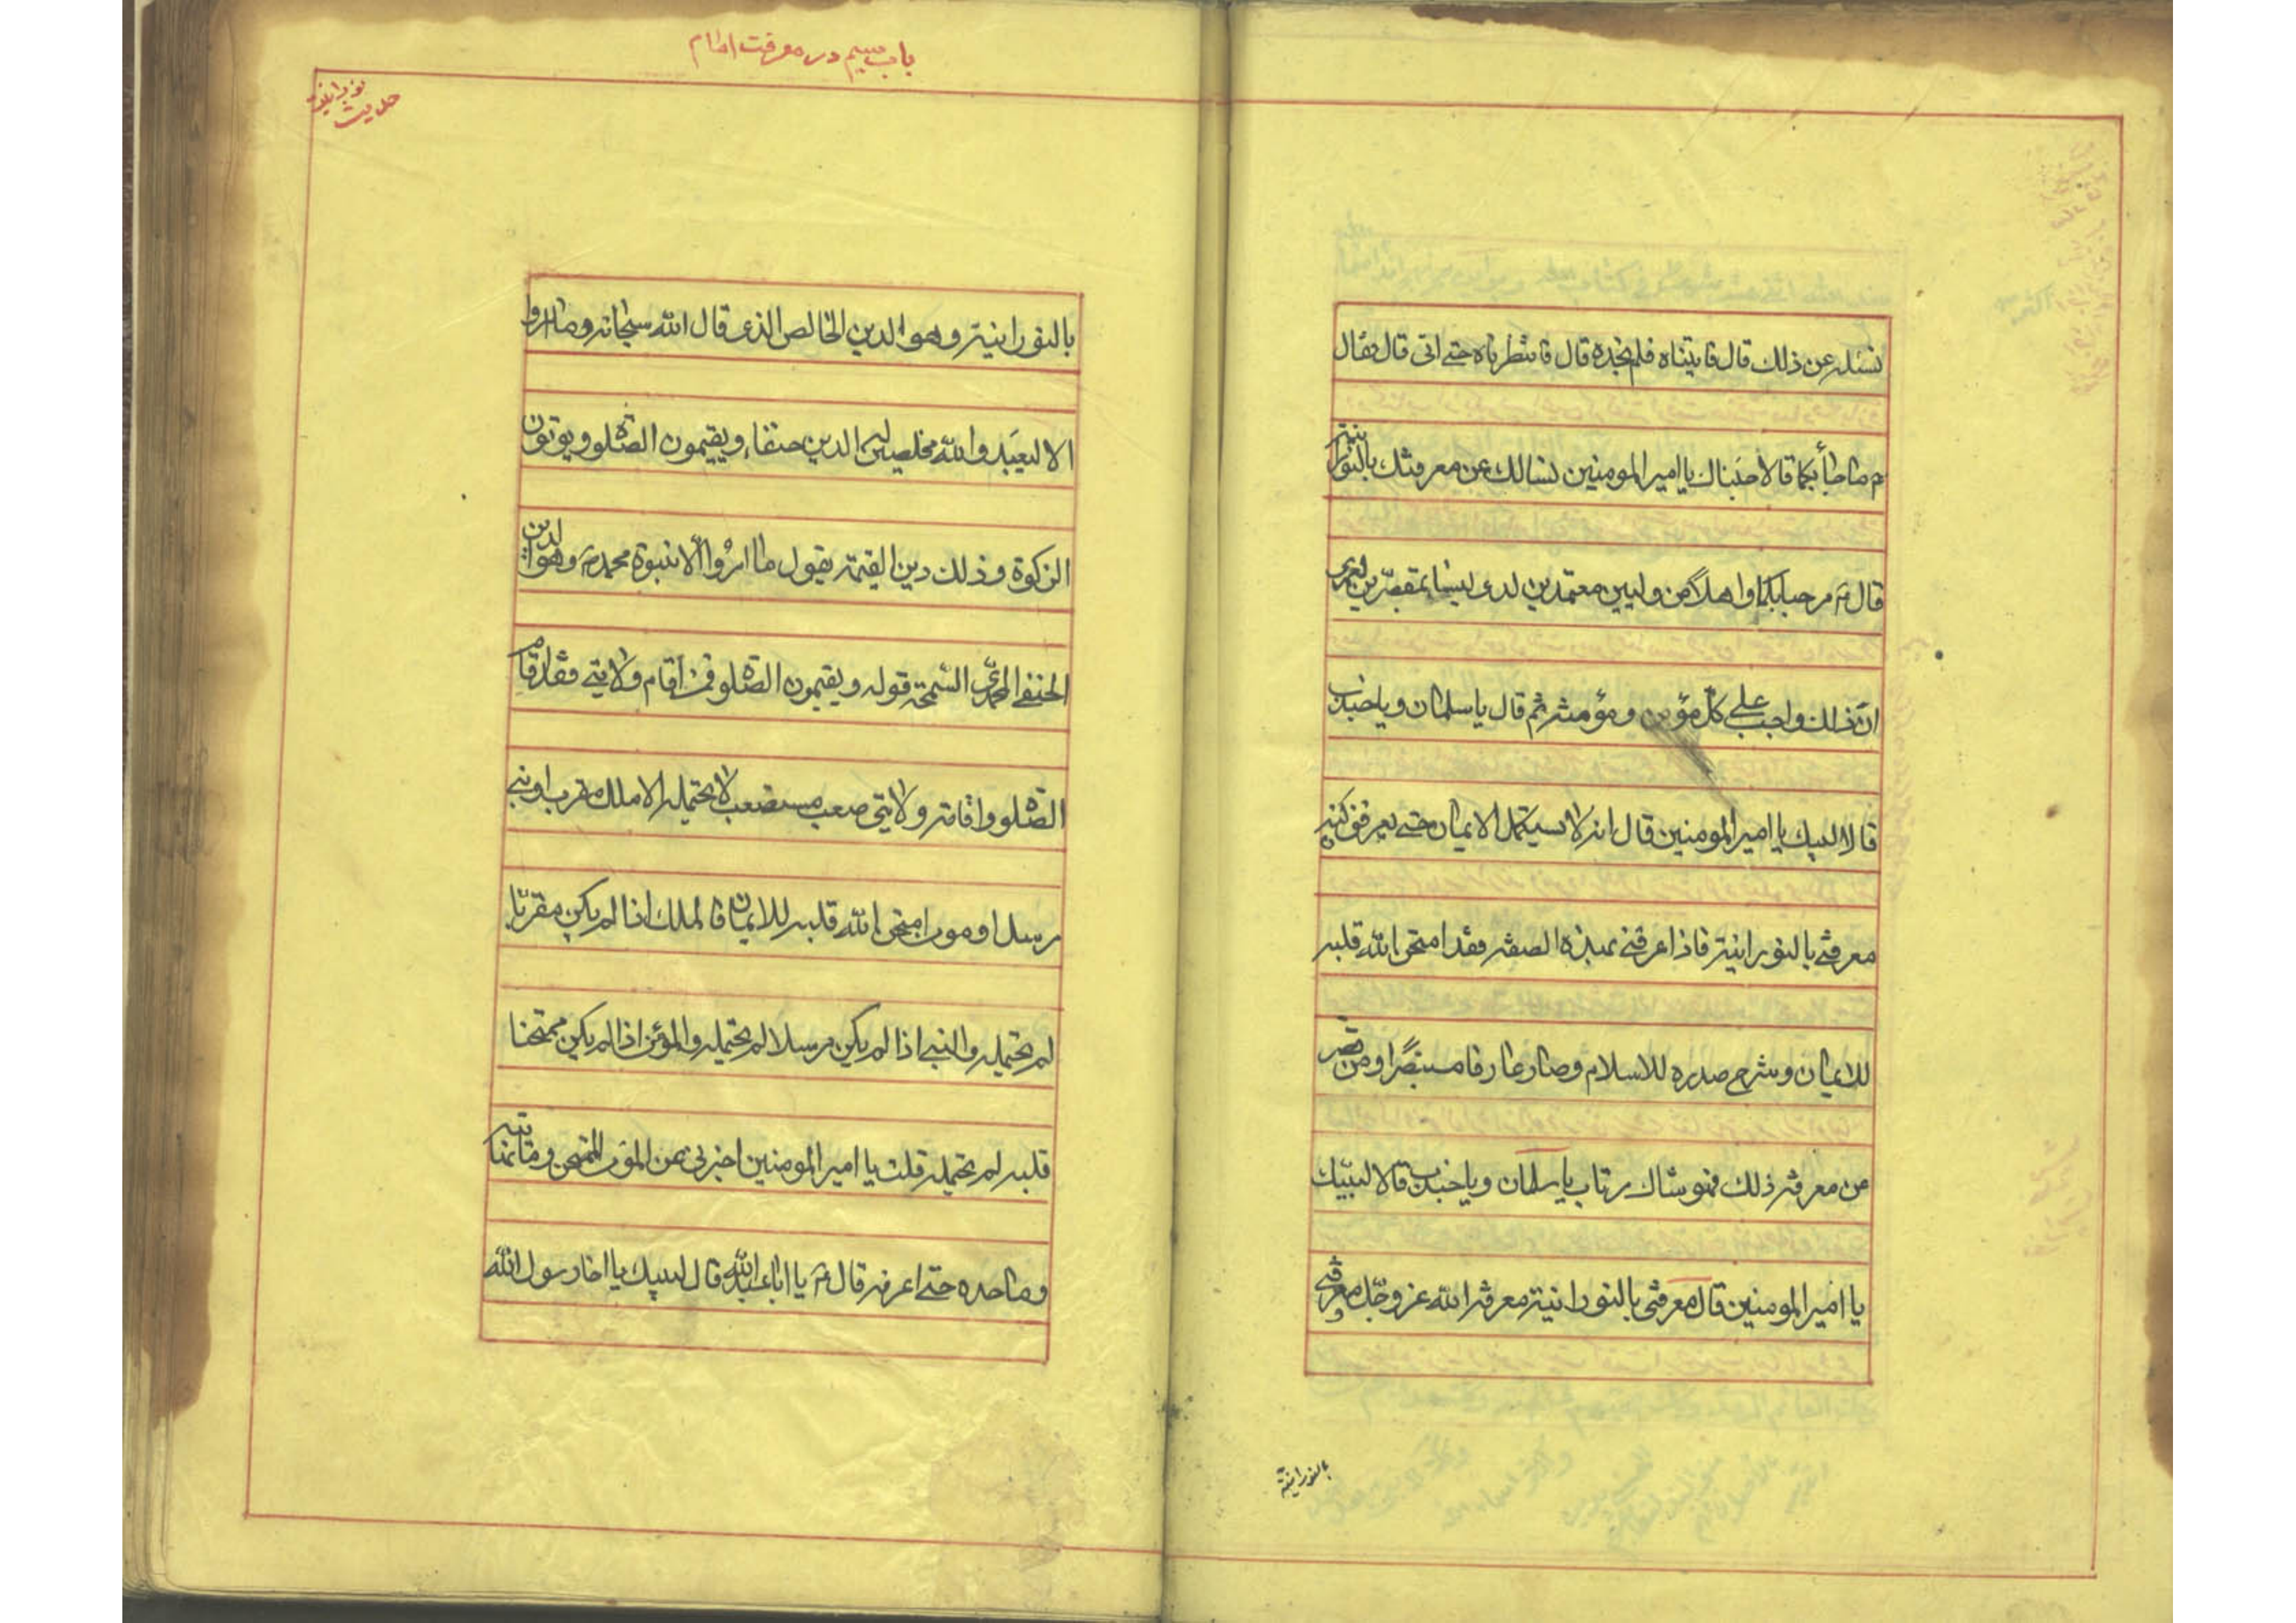 نسئله عن ذلك قال فاتيناه فلم نجده قال فانتظرناه حتے اتی قال فقال
م ماجأ بكما قالا جئناك يا اميرالمومنين نسالك عن معرفتك بالنورانيته
قال م مرحبابكما واهلا من وليين معتمدين لدى لستما بمقصرين لعمرى
ان ذلك واجب علے كل مؤمن ومؤمنة ثم قال ياسلمان وياجندب
قالا لبيك يا اميرالمومنين قال انه لا يستكمل الايمان حتے يعرفنى كنه
معرفتے بالنورانية فاذا عرفنے بهذه الصفة فقد امتحن الله قلبه
للايمان وشرح صدره للاسلام وصار عارفا مستبصرا ومن قصر
من معرفة ذلك فهو شاك مرتاب ياسلمان وياجندب قالا لبيك
يا اميرالمومنين قال معرفتى بالنورانية معرفة الله عزوجل ومعرفتے
بالنورانية
باب سيم در معرفت امام
حديث نورانيه
بالنورانية وهو الدين الخالص الذى قال الله سبحانه وما امروا
الا ليعبدوا الله مخلصين له الدين حنفاء ويقيمون الصلوة ويوتون
الزكوة وذلك دين القيمة يقول ما امروا الا بنبوة محمد م وهو الدين
الحنفے المحمدى السمحة قوله ويقيمون الصلوة فمن اقام ولايتے فقد اقام
الصلوة واقامة ولايتى صعب مستصعب لا يحتمله الا ملك مقرب او نبے
مرسل او مومن امتحن الله قلبه للايمان فالملك اذا لم يكن مقربا
لم يحتمله والنبے اذا لم يكن مرسلا لم يحتمله والمؤمن اذا لم يكن ممتحنا
قلبه لم يحتمله قلت يا اميرالمومنين اخبرنى من المؤمن الممتحن وما نهايته
وماحده حتے اعرفه قال م يا اباعبدالله قال لبيك يا اخا رسول الله